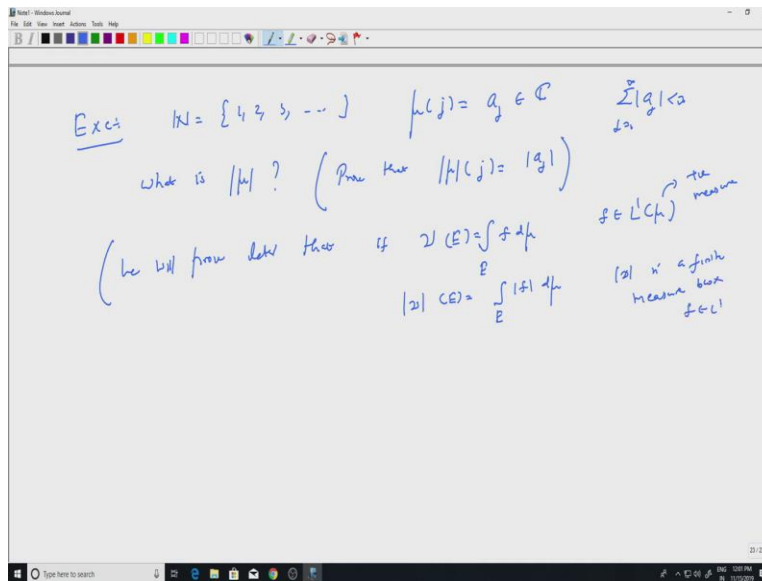 Note1 - Windows Journal
File Edit View Insert Actions Tools Help
Exc: ℕ = {1, 2, 3, ---} μ(j) = a_j ∈ ℂ ∑_{j=1}^∞ |a_j| < ∞
what is |μ| ? (Prove that |μ|(j) = |a_j|)
(We will prove later that if ν(E) = ∫_E f dμ f ∈ L¹(μ) → +ve measure
|ν|(E) = ∫_E |f| dμ |ν| is a finite measure
f ∈ L¹
23 / 2
Type here to search
ENG 12:01 PM
IN 11/15/2019